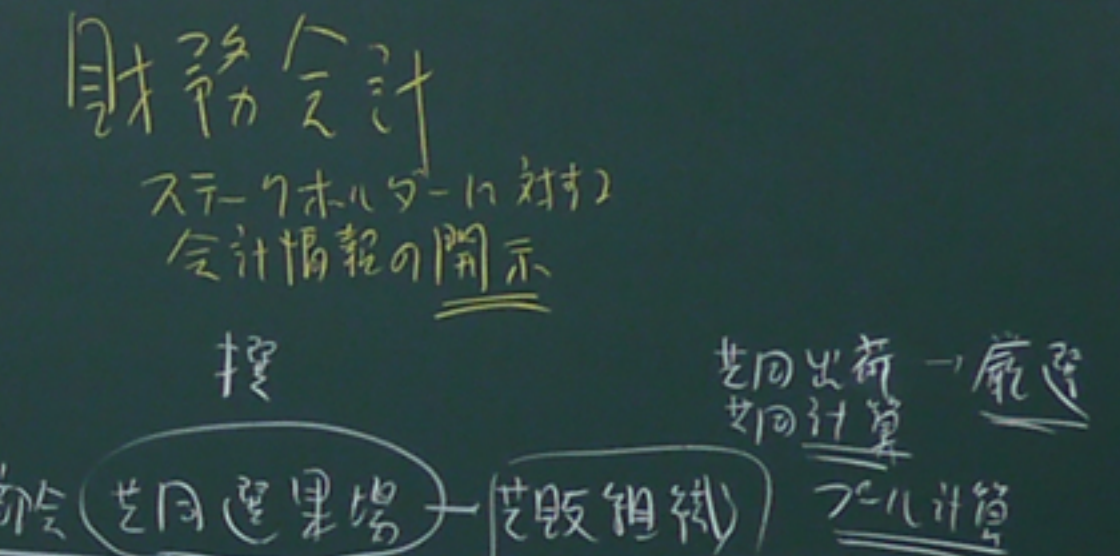 財務会計
ステークホルダーに対する
会計情報の開示
共同出荷 → 厳選
共同計算
共同選果場 ー 共販組織
プール計算